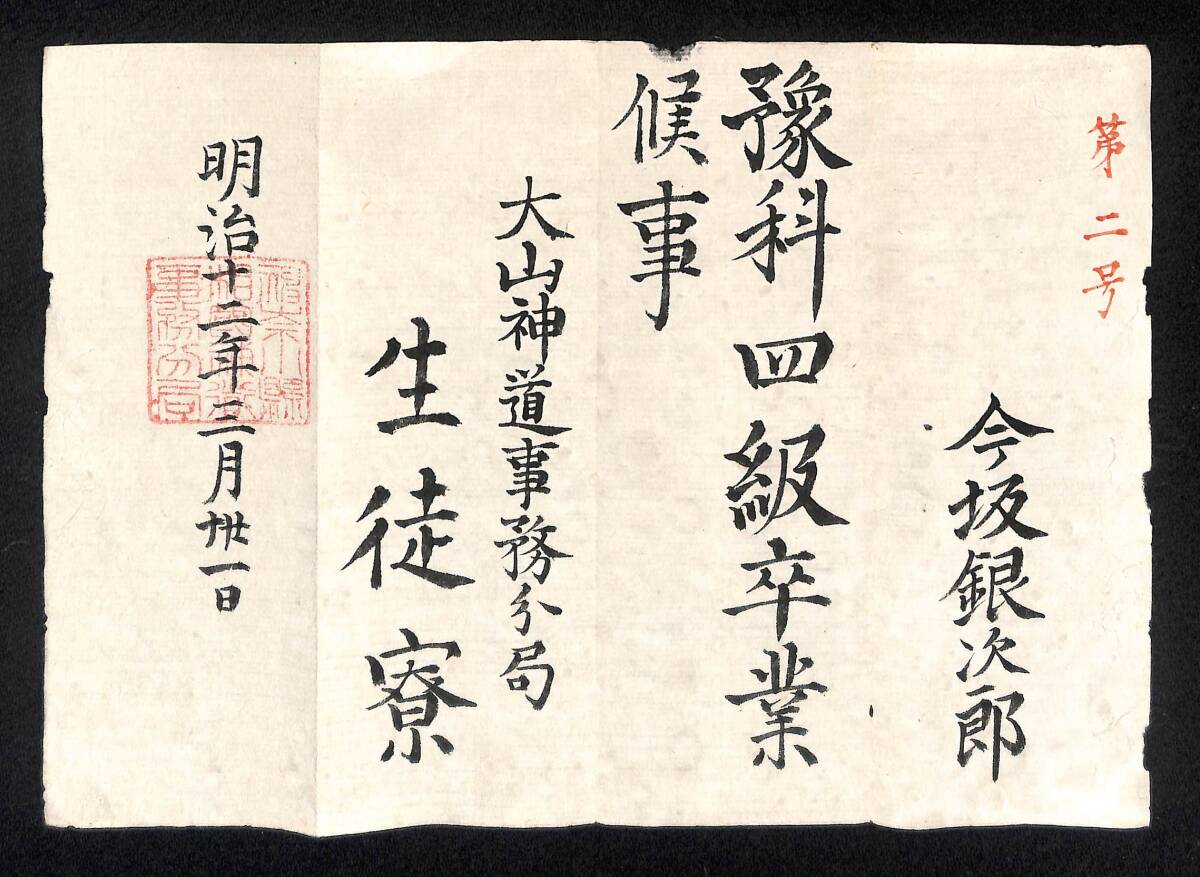 第二号
今坂銀次郎
豫科四級卒業
候事
大山神道事務分局
生徒寮
明治十二年三月卅一日
事務分局